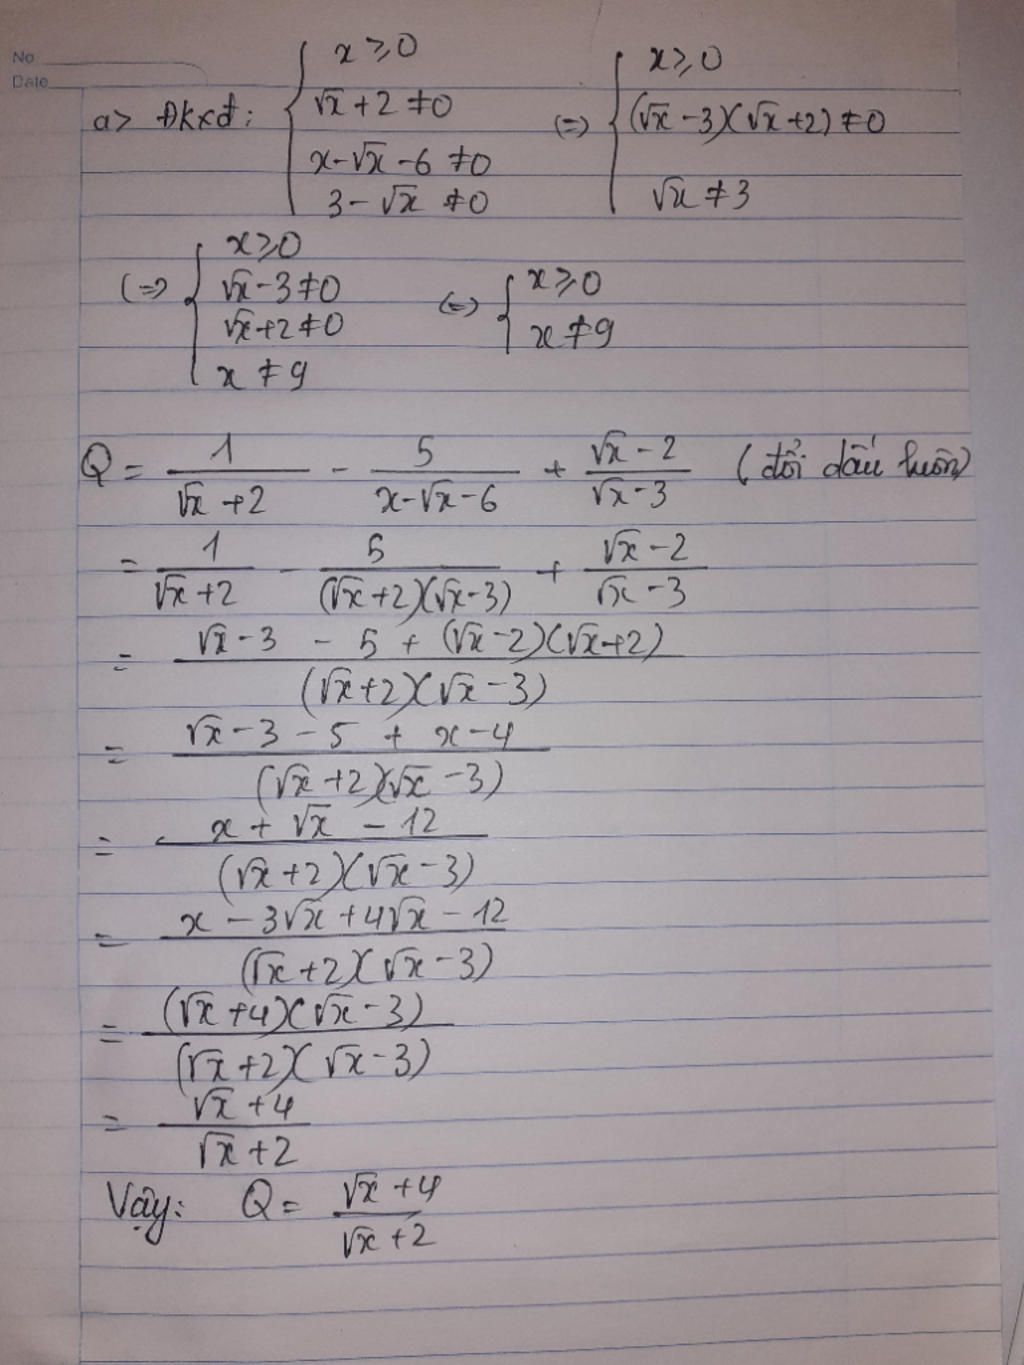 No
Date
a> Đkxđ: { x ≥ 0
√x + 2 ≠ 0
x - √x - 6 ≠ 0
3 - √x ≠ 0
(=) { x ≥ 0
(√x - 3)(√x + 2) ≠ 0
√x ≠ 3
(=) { x ≥ 0
√x - 3 ≠ 0
√x + 2 ≠ 0
x ≠ 9
(=) { x ≥ 0
x ≠ 9
Q = 1/(√x + 2) - 5/(x - √x - 6) + (√x - 2)/(√x - 3) (đổi dấu luôn)
= 1/(√x + 2) - 5/((√x + 2)(√x - 3)) + (√x - 2)/(√x - 3)
= (√x - 3 - 5 + (√x - 2)(√x + 2))/((√x + 2)(√x - 3))
= (√x - 3 - 5 + x - 4)/((√x + 2)(√x - 3))
= (x + √x - 12)/((√x + 2)(√x - 3))
= (x - 3√x + 4√x - 12)/((√x + 2)(√x - 3))
= ((√x + 4)(√x - 3))/((√x + 2)(√x - 3))
= (√x + 4)/(√x + 2)
Vậy: Q = (√x + 4)/(√x + 2)